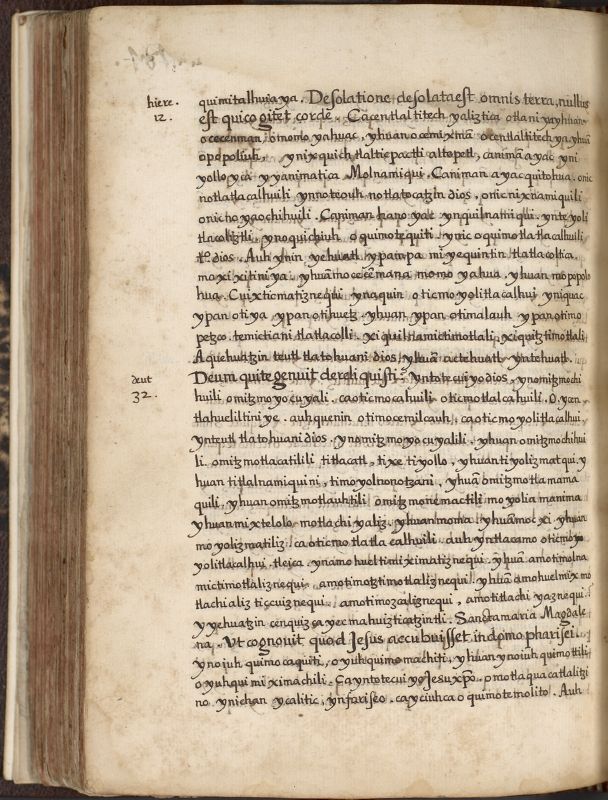 hiere. 12.
quimitalhuia ya. Desolatione desolata est omnis terra, nullus
est qui cogitet corde. Ca centlaltitech yaliztica otlani yayhuan
ocecenman, otnomo yahuac, yhuan ocemixtnia ocentlaltitech ya, yhuā
opopoliuh, ynixquich tlalticpactli altepetl, canimā ayac yni
yolloyca yyanimatica Molnamiqui. Caniman ayac quitohua. onic
notlatlacalhuili ynnoteouh notlatocatzin dios, onicnixnamiquili
onicnoyaochihuili. Caniman
tlacoliztli, ynoquichiuh oquimotequiti ynic oquimotlatlacalhuili
dios. Auh ynin yehuatl ypampa miyequintin tlatlacoltica
maxixitiniya, yhuāmocecēmana momoyahua, yhuan mopopolo
hua. Cuix ticmatiznequi ynaquin oticmoyolitlacalhui yniquac
ypan otiya ypan otihuetz yhuan ypan otimalauh ypan otimo
petzco temictiani tlatlacolli. xiquiltlamictimotlali, xiquiztimotlali
Aquehuatzin teutl tlatohuani dios, yhuā ca tehuatl yntehuatl.
deut 32.
Deum qui te genuit dereliquisti. yntotecuiyo dios, ynomitzmochi
huili omitzmoyocuyali. caoticmocahuili oticmotlalcahuili. O. ycen
tlahueliltiniye. auh quenin otimocemilcauh, caoticmoyolitlacalhui,
ynteutl tlatohuani dios. ynomitzmoyocuyalili. yhuan omitzmochihui
li. omitzmotlacatilili titlacatl, tixe tiyollo, yhuan tiyolizmatqui. y
huan titlalnamiquini, timoyolnonotzani, yhuā omitzmotlamama
quili, yhuan omitzmotlauhtili omitzmonemactili moyolia manima
yhuan mixtelolo motlachiyaliz. yhuan moma yhuāmocxi. yhuan
moyolizmatiliz. ca oticmotlatlacalhuili. auh yntlacamo oticmoyo
yolitlacalhui, tleica, ynamo huel timiximatiznequi. yhuā amotimolna
mictimotlaliznequi. amotimotztimotlaliznequi. yhuān amohuelmixmo
tlachializticcuiznequi. amotimozcaliznequi, amotitlachiyaznequi.
yyehuatzin cenquizcayecmahuizticatzintli. Sancta maria Magdale
na. Ut cognovit quod Jesus accubuisset in domo pharisei.
ynoiuh quimocaquiti, oyuhquimomachiti, yhuan ynoiuh quimottili
oyuhquimiximachili. Ca yntotecuiyo Jesu xpō. omotlaquacatlalitzi
no ynichan ycalitic, ynfariseo. caycíuhca oquimotemolito. Auh